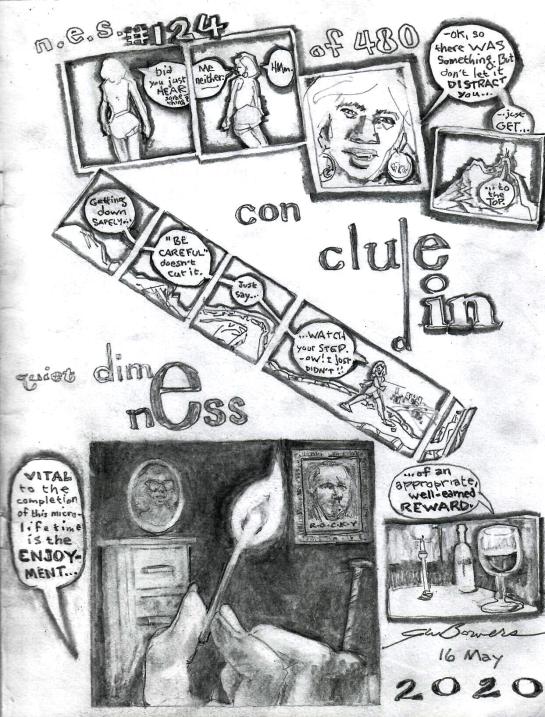 n.e.s. #124
of 480
Did
you just
HEAR
some
thing?
Me
neither...
Hmm.
-OK, so
there WAS
Something. But
don't let it
DISTRACT
You...
...just
GET...
...to
the
TOP.
con
clude
in
Getting
down
SAFELY...
"BE
CAREFUL"
doesn't
cut it.
Just
say...
...WATCH
your STEP.
-OW! I just
DIDN'T!!
quiet dim
nEss
VITAL
to the
completion
of this micro-
lifetime
is the
ENJOY-
MENT...
R-O-C-K-Y
...of an
appropriate,
well-earned
REWARD.
JW Bowers
16 May
2020